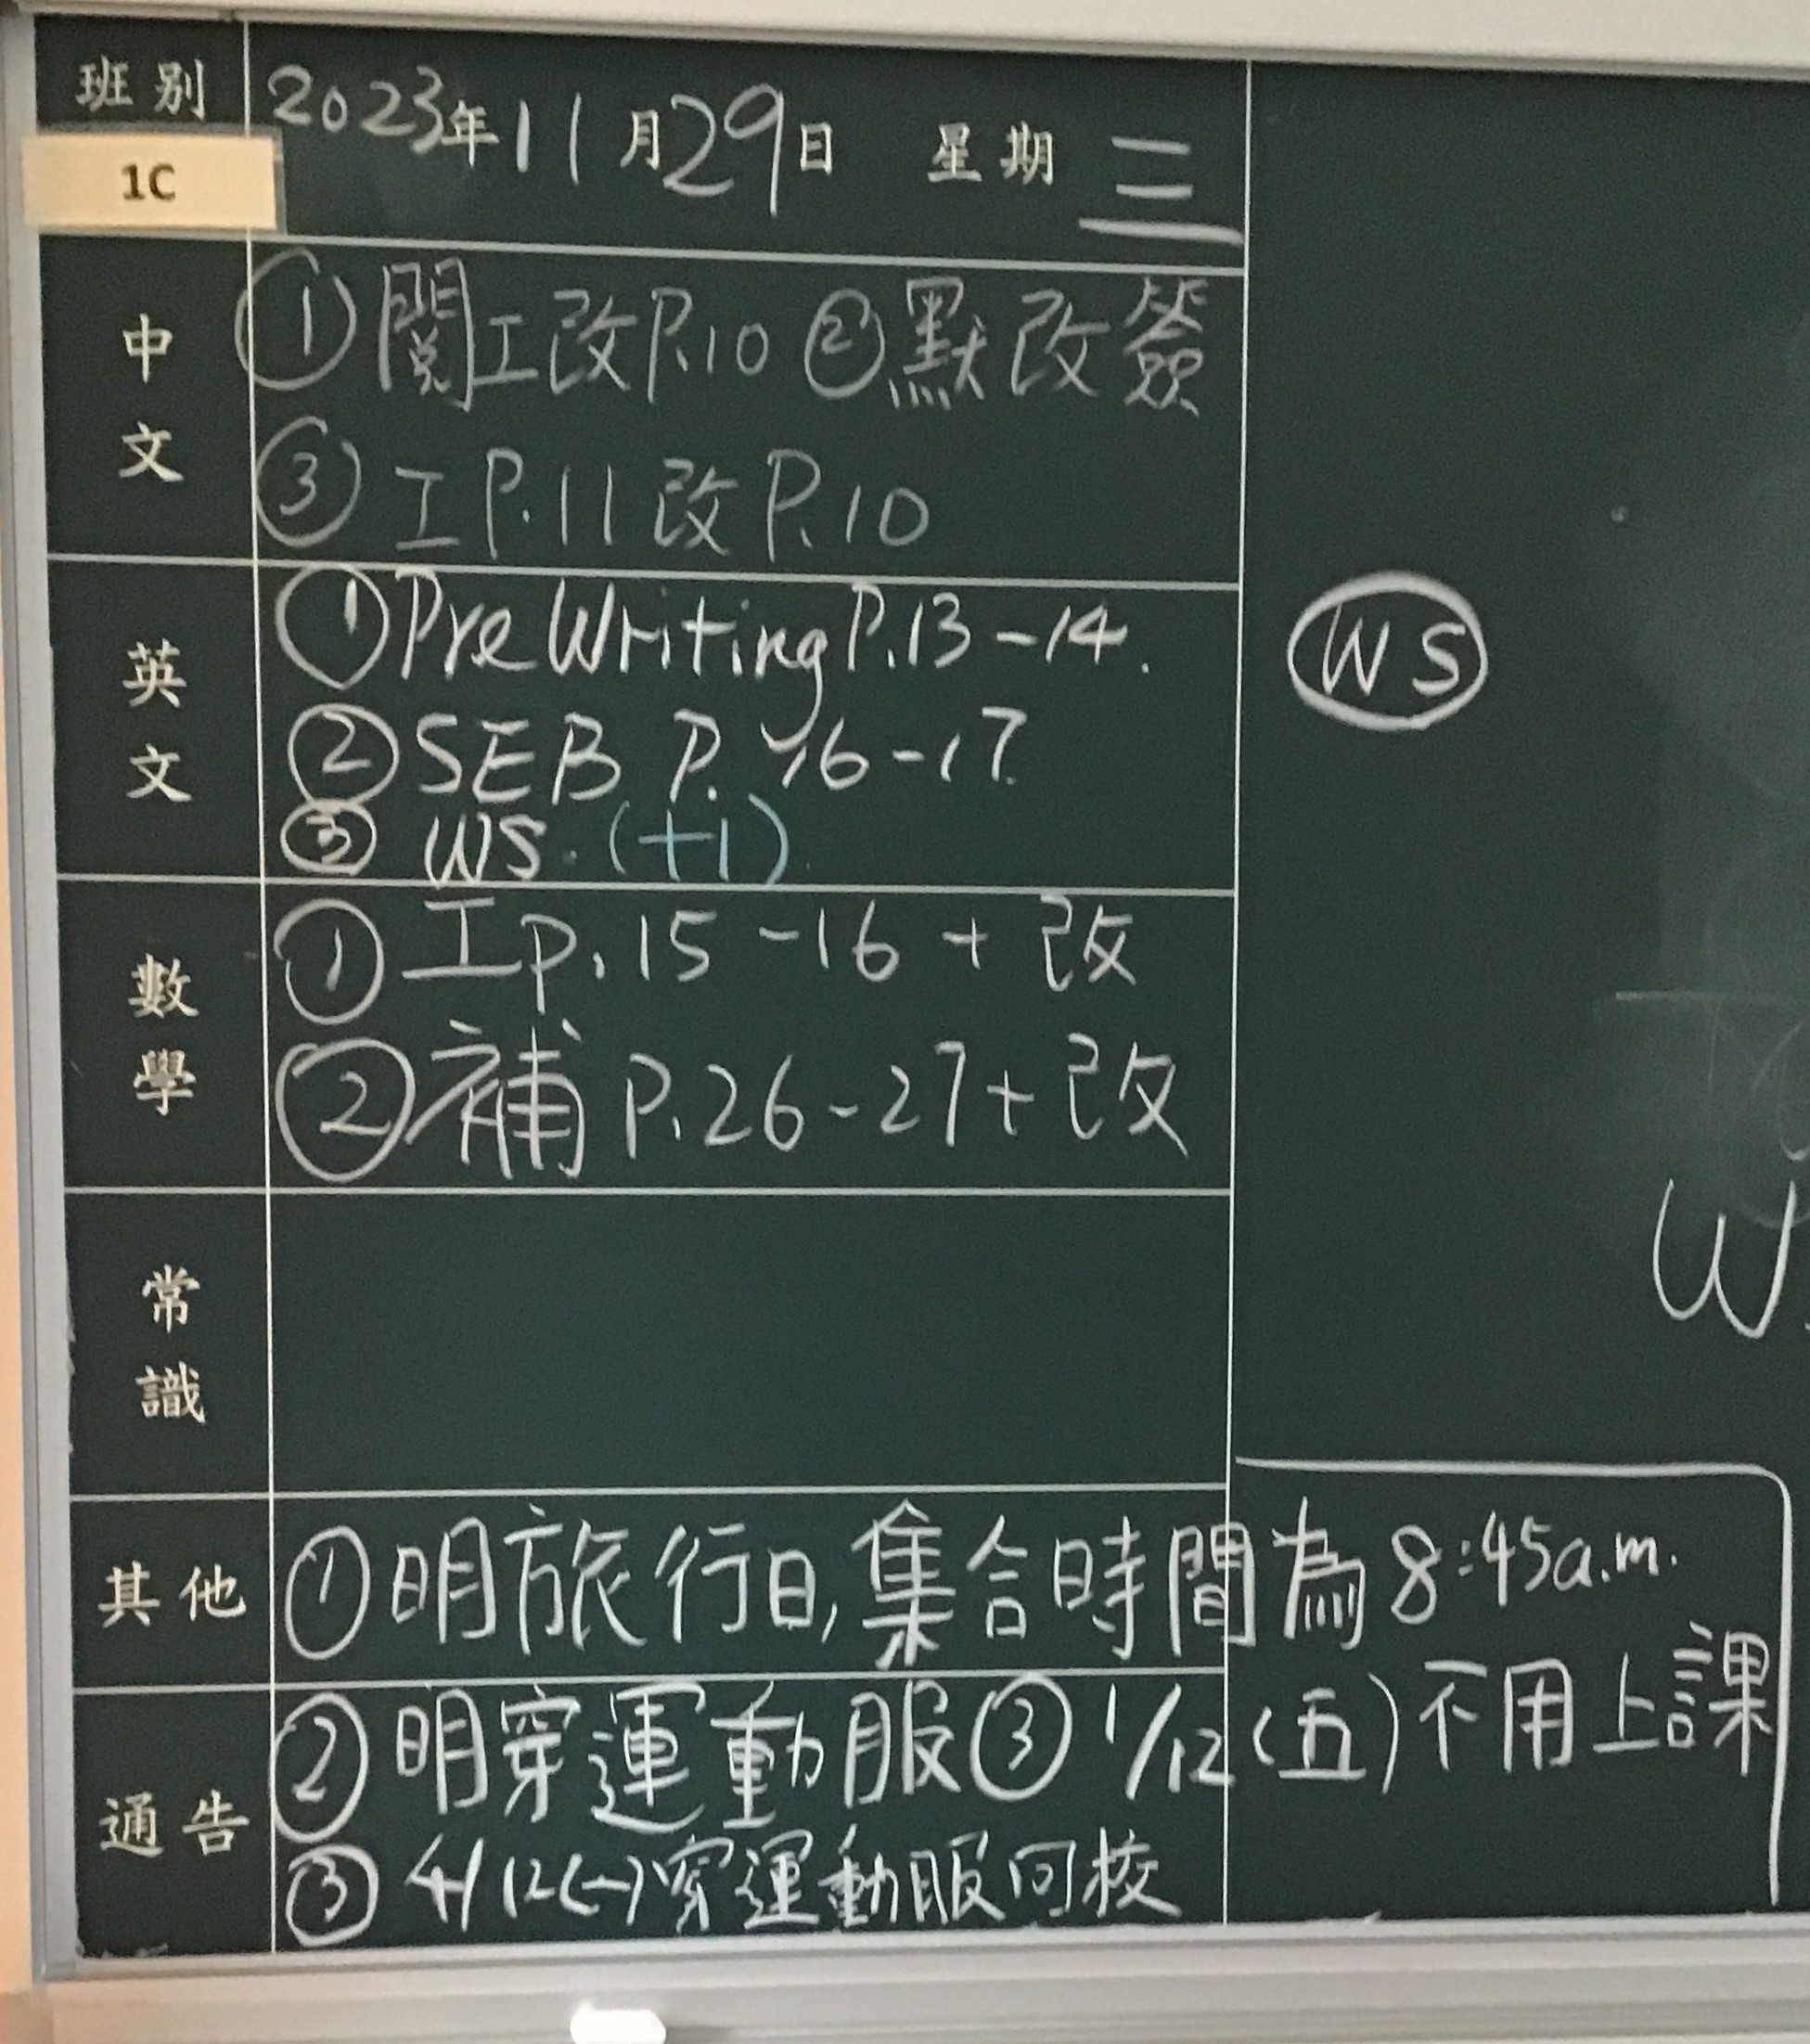 班別 2023年11月29日 星期三
1C
中文
①閱工改P.10 ②默改簽
③工P.11改P.10
英文
①Pre Writing P.13-14.
②SEB P. 16-17
③ WS. (+1)
WS
數學
①工p.15-16+改
②補P.26-27+改
W
常識
其他
①明旅行日,集合時間為8:45a.m.
通告
②明穿運動服③1/12(五)不用上課
③4/12(一)穿運動服回校